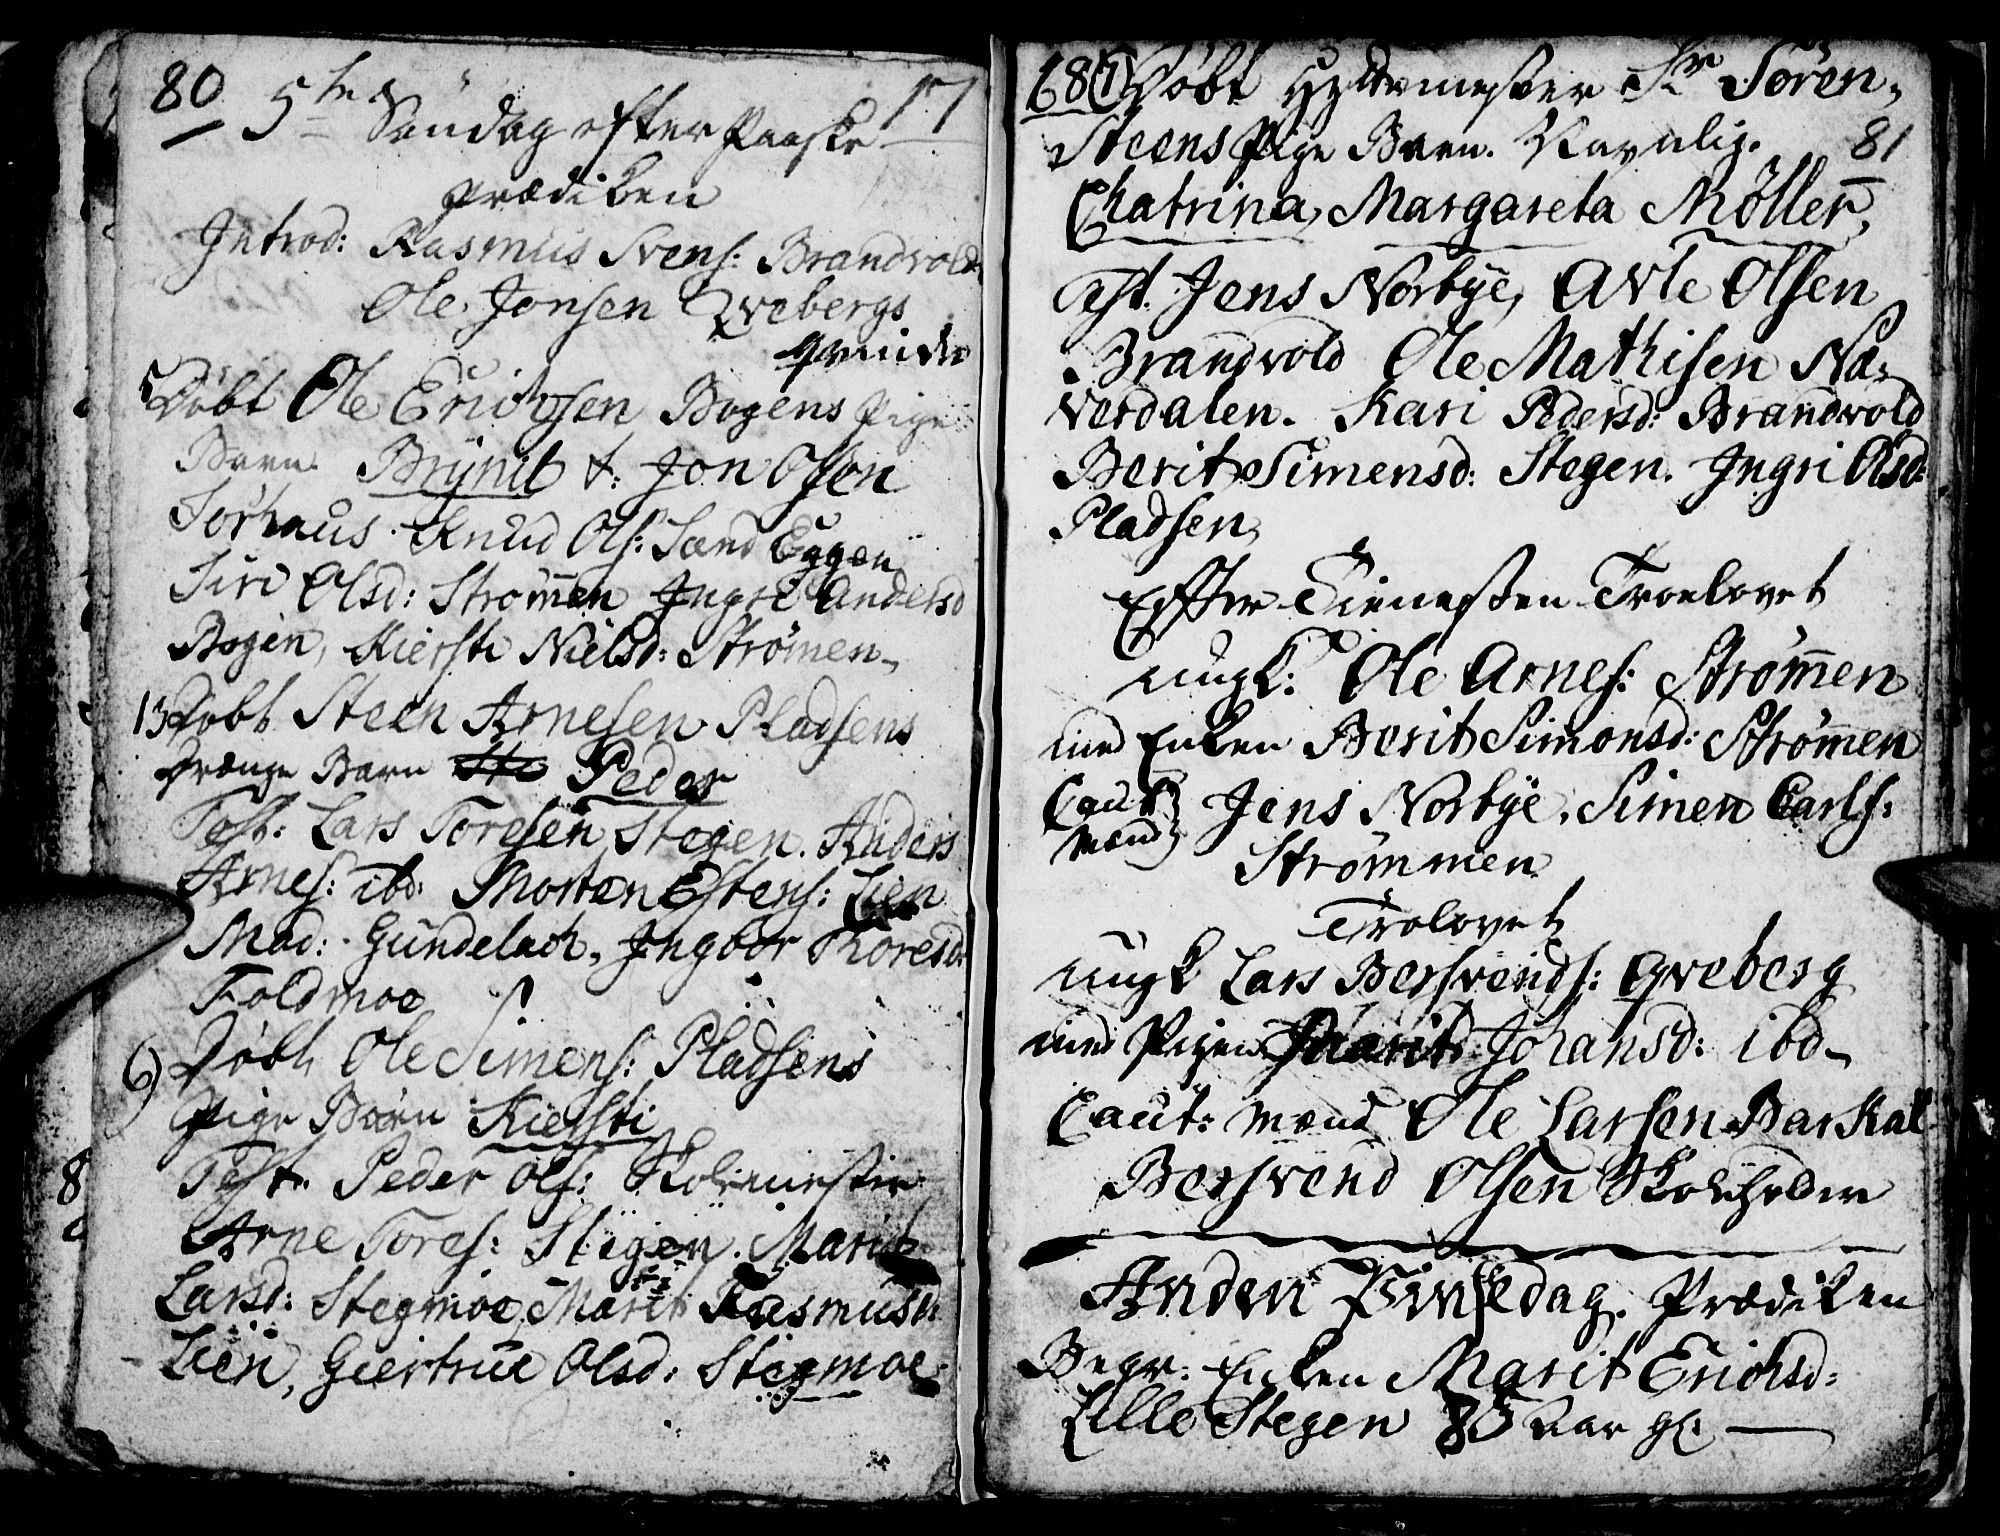 80 17
5te Søndag efter Paaske
Prædiken
Introd: Rasmus Svens: Brandvold
Ole Jonsen Qvebergs
qvinder
5 Døbt Ole Erichsen Bogens Pige
Barn Brynil t: Jon Olsen
Sørhuus. Knud Ols: Sand Eggen
Siri Olsd: Strømen Ingri Andersd
Bogen, Kiersti Nielsd: Strømen
13 Døbt Steen Arnesen Pladsens
Drænge Barn Peder
Test: Lars Toresen Stegen. Anders
Arnes: ibd: Morten Estens: Lien
Mad: Gundelach, Ingbor Thoresd:
Foldmoe
6) Døbt Ole Simens: Pladsens
Pige Barn Kiersti
Test. Peder Ols: Skolemester
Arne Tores: Stigen. Marit
Larsd: Stegmoe, Marit Rasmusd:
Lien, Giertrue Olsd: Stegmoe
687) Døbt Hyttemester Sr Sören
Steens Pige Barn. Navnlig. 81
Chatrina, Margareta Møller,
Test. Jens Norbye, Avle Olsen
Brandvold Ole Mathisen Na-
verdalen. Kari Pedersd: Brandvold
Berit Simensd: Stegen. Ingri Olsd:
Pladsen
Effter Tienesten Troelovet
ungk: Ole Arnes: Strømen
med Enken Berit Simonsd: Strømen
Caut: mænd Jens Norbye, Simen Carls:
Strømmen
Trolovet
ungk Lars Bersvends: Qveberg
med Pigen Marit Johansd: ibd-
Caut: mænd Ole Larsen Barkal
Bersvend Olsen Skoeholder
Anden Pinsedag. Prædiken
Begr: Enken Marit Erichsd:
Lille Stegen 83 aar gl.